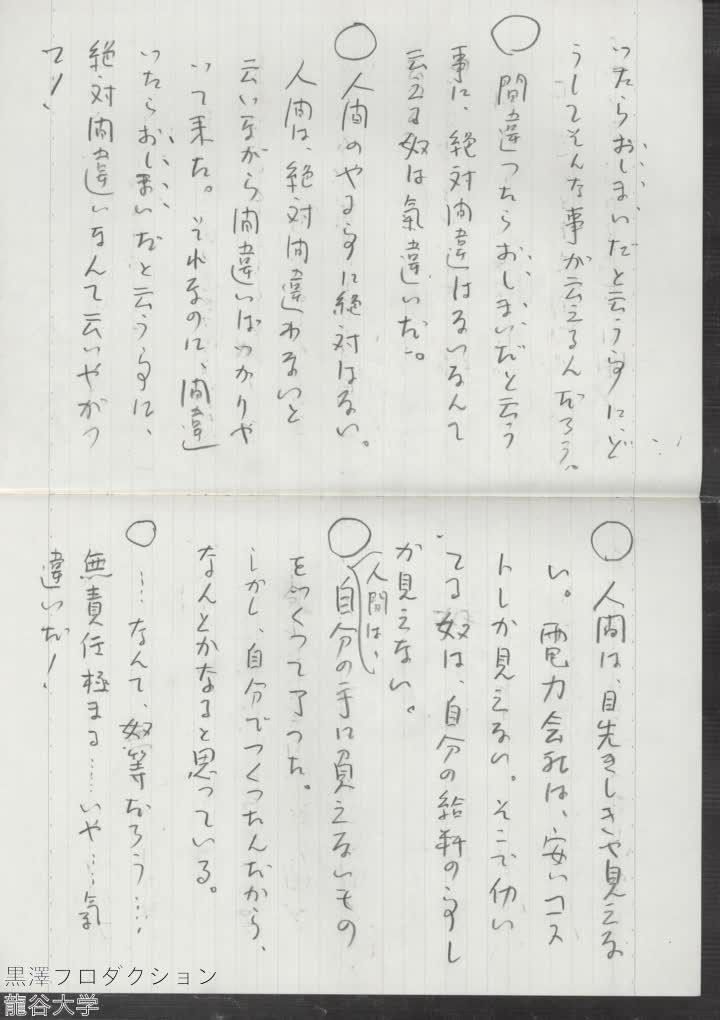 いたらおしまいだと云う事に、ど
うしてそんな事が云えるんだろう。
○ 間違ったらおしまいだと云う
事に、絶対間違はないなんて
云える奴は氣違いだ。
○ 人間のやる事に絶対はない。
人間は、絶対間違わないと
云いながら間違いばっかりや
って来た。それなのに、間違
いたらおしまいだと云う事に、
絶対間違いなんて云いやがっ
て!
○ 人間は、目先きしきゃ見えな
い。電力会社は、安いコス
トしか見えない。そこで仂い
てる奴は、自分の給料の事し
か見えない。
○ 人間は、自分の手に負えないもの
をつくって了った。
しかし、自分でつくったんだから、
なんとかなると思っている。
○ …なんて、奴等だろう…、
無責任極まる……いや…氣
違いだ!
黒澤プロダクション
龍谷大学